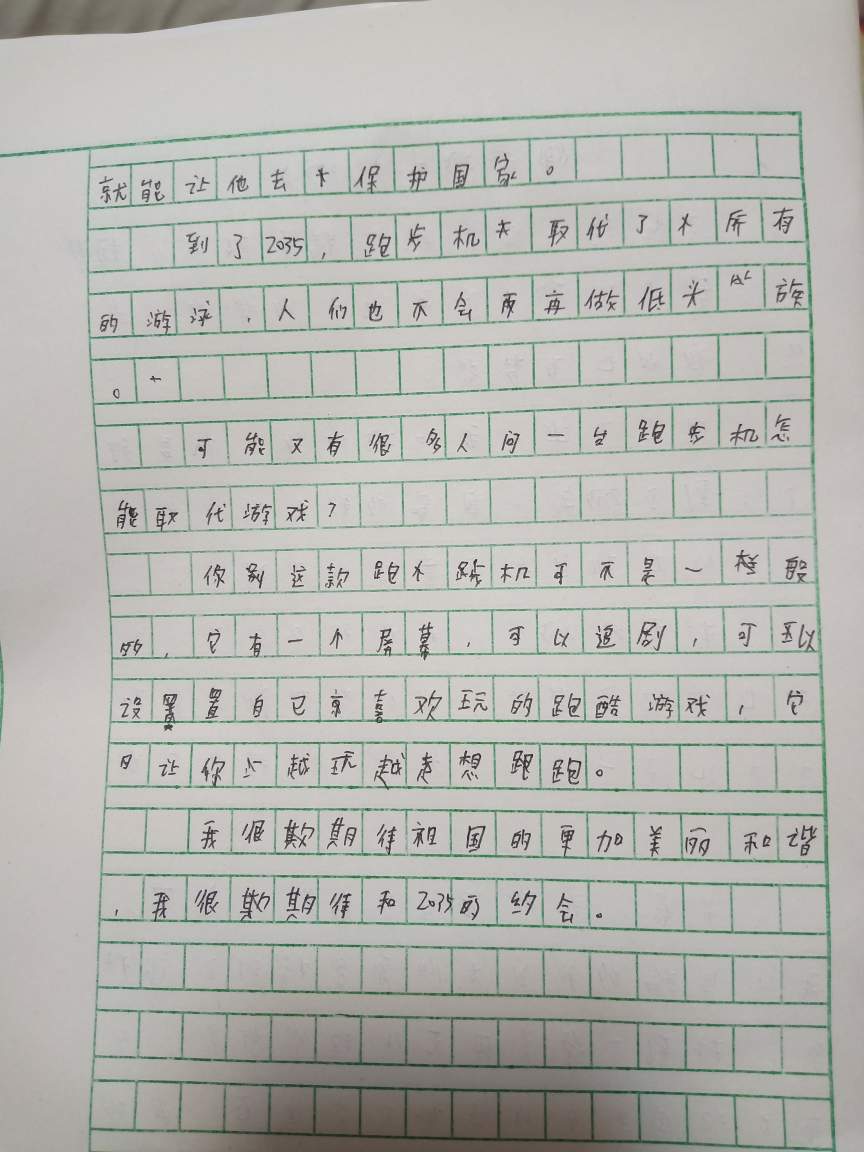 就能让他去保护国家。
到了2035，跑步机取代了所有
的游戏，人们也不会再做低头族
。
可能又有很多人问一台跑步机怎
能取代游戏？
你别这款跑步机可不是一般
的，它有一个屏幕，可以追剧，可以
设置自己喜欢玩的跑酷游戏，它
让你越玩越想跑。
我很期待祖国的更加美丽和谐
，我很期待和2035的约会。